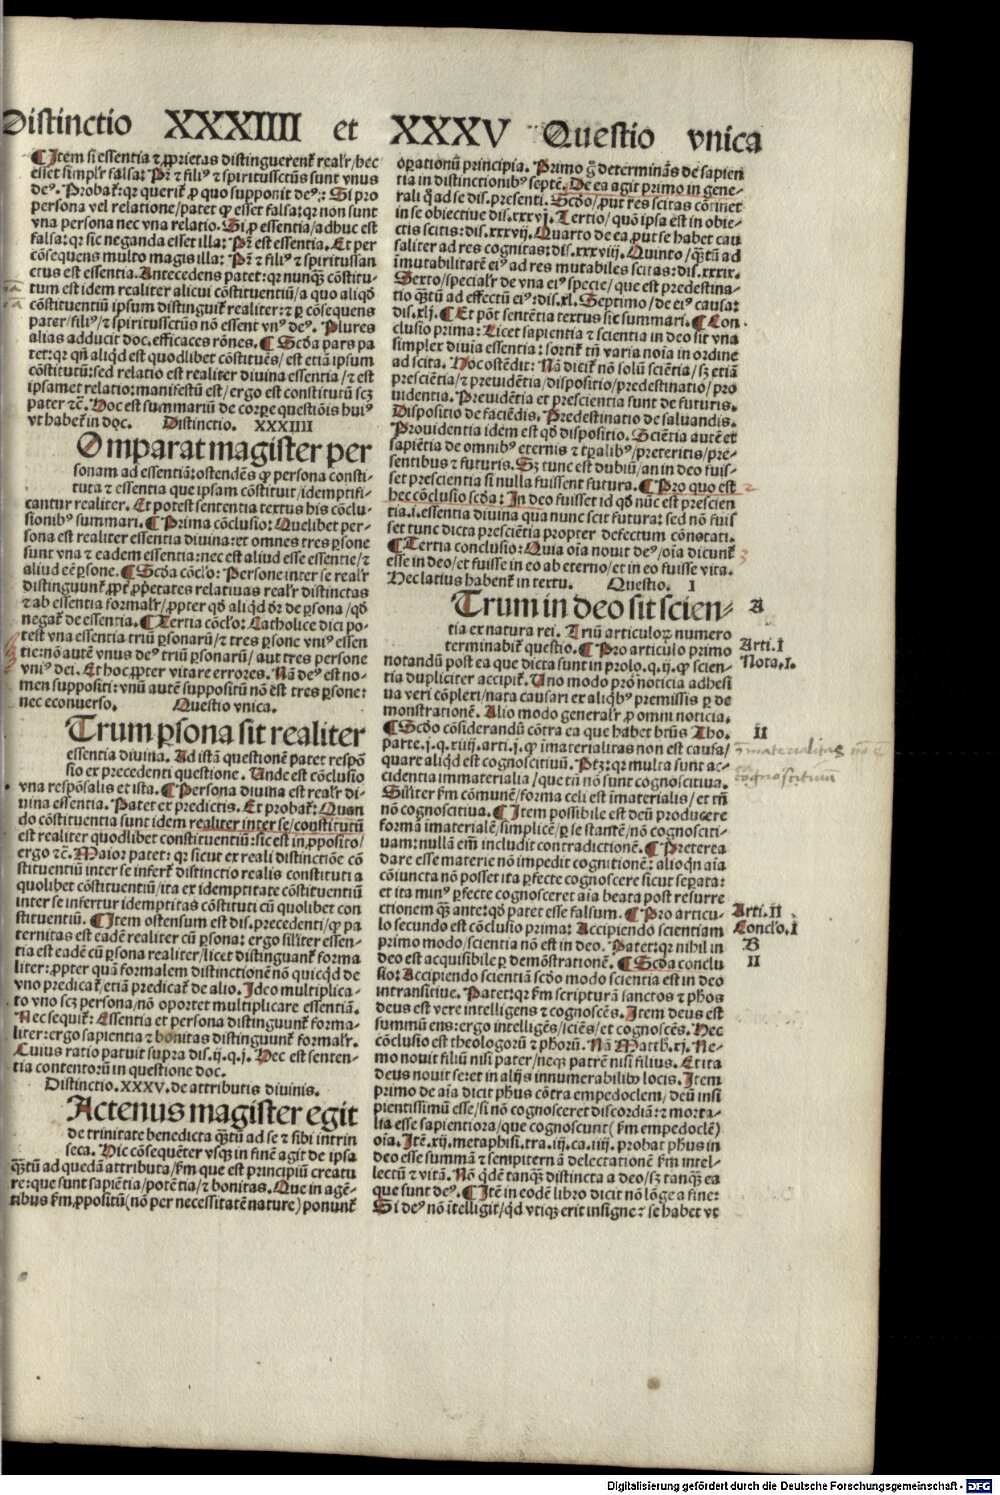 Distinctio XXXIIII et XXXV Questio vnica
¶ Item si essentia ⁊ ꝓprietas distinguerent̃ realr̃/hec
esset simplr̃ falsa: Pr̃ ⁊ filiꝰ ⁊ spiritussctũs sunt vnus
deꝰ. Probat̃: qꝛ querit̃ ꝓ quo supponit deꝰ: Si pro
persona vel relatione/patet ꝙ esset falsa: qꝛ non sunt
vna persona nec vna relatio. Si ꝓ essentia/adhuc est
falsa: qꝛ sic neganda esset illa: Pr̃ est essentia. Et per
cõsequens multo magis illa: Pr̃ ⁊ filiꝰ ⁊ spiritussan
ctus est essentia. Antecedens patet: qꝛ nunqȝ cõstitu-
tum est idem realiter alicui cõstituentiũ/a quo aliqđ
cõstituentiũ ipsum distinguit̃ realiter: ⁊ ꝑ cõsequens
pater/filiꝰ/⁊ spiritussctũs nõ essent vnꝰ deꝰ. Plures
alias adducit doc. efficaces rõnes. ¶ Scđa pars pa
tet: qꝛ qñ aliqđ est quodlibet cõstituẽs/est etiã ipsum
cõstitutũ: sed relatio est realiter diuina essentia/⁊ est
ipsamet relatio: manifestũ est/ergo est constitutũ scȝ
pater ⁊c̃. Hoc est summariũ de corpe questiõis huiꝰ
vt habet̃ in doc. Distinctio. XXXIIII
Omparat magister per
sonam ad essentiã: ostendẽs ꝙ persona consti-
tuta ⁊ essentia que ipsam cõstituit/idemptifi-
cantur realiter. Et potest sententia textus his cõclu-
sionibꝰ summari. ¶ Prima cõclusio: Quelibet per-
sona est realiter essentia diuina: et omnes tres ꝑsone
sunt vna ⁊ eadem essentia: nec est aliud esse essentie/⁊
aliud eẽ ꝑsone. ¶ Scđa cõclo: Persone inter se realr̃
distinguunt̃ ꝓpt̃ ꝓp̃etates relatiuas realr̃ distinctas
⁊ ab essentia formalr̃/ꝓpter qđ aliqđ đr de ꝑsona/qđ
negat̃ de essentia. ¶ Tertia cõclo: Catholice dici po-
test vna essentia triũ ꝑsonarũ/⁊ tres ꝑsone vniꝰ essen
tie: nõ autẽ vnus deꝰ triũ ꝑsonarũ/aut tres persone
vniꝰ dei. Et hoc ꝓpter vitare errores. Nã deꝰ est no-
men suppositi: vnũ autẽ suppositũ nõ est tres ꝑsone:
nec econuerso. Questio vnica.
Trum ꝑsona sit realiter
essentia diuina. Ad istã questionẽ patet respõ
sio ex precedenti questione. Unde est cõclusio
vna respõsalis et ista. ¶ Persona diuina est realr̃ di-
uina essentia. Patet ex predictis. Et probat̃: Quan
do cõstituentia sunt idem realiter inter se/constitutũ
est realiter quodlibet constituentiũ: sic est in ꝓposito/
ergo ⁊c̃. Maior patet: qꝛ sicut ex reali distinctiõe cõ
stituentiũ inter se infert̃ distinctio realis constituti a
quolibet cõstituentiũ/ita ex idemptitate cõstituentiũ
inter se infertur idemptitas cõstituti cũ quolibet con
stituentiũ. ¶ Item ostensum est dis. precedenti/ꝙ pa
ternitas est eadẽ realiter cũ ꝑsona: ergo sil̃iter essen-
tia est eadẽ cũ ꝑsona realiter/licet distinguant̃ forma
liter: ꝓpter quã formalem distinctionẽ nõ quicqđ de
vno predicat̃/etiã predicat̃ de alio. Ideo multiplica-
to vno scȝ persona/nõ oportet multiplicare essentiã.
Nec sequit̃: Essentia et persona distinguunt̃ forma-
liter: ergo sapientia ⁊ bonitas distinguunt̃ formalr̃.
Cuius ratio patuit supra dis. ij. q. j. Hec est senten-
tia contentorũ in questione doc.
Distinctio. XXXV. de attributis diuinis.
Actenus magister egit
de trinitate benedicta qȝtũ ad se ⁊ sibi intrin
seca. Hic cõsequẽter vsqȝ in finẽ agit de ipsa
qȝtũ ad quedã attributa/ẜm que est principiũ creatu
re: que sunt sapiẽtia/potẽtia/⁊ bonitas. Que in agẽ-
tibus ẜm ꝓpositũ (nõ per necessitatẽ nature) ponunt̃
oꝑationũ principia. Primo g̃ determinãs de sapien
tia in distinctionibꝰ septẽ. De ea agit primo in gene-
rali q̃ ad se dis. presenti. Scđo/ꝓut res scitas cõtinet
in se obiectiue dis. xxxvj. Tertio/quõ ipsa est in obie-
ctis scitis: dis. xxxvij. Quarto de ea ꝓut se habet cau
saliter ad res cognitas: dis. xxxviij. Quinto/qȝtũ ad
ĩmutabilitatẽ eiꝰ ad res mutabiles scitas: dis. xxxix.
Sexto/specialr̃ de vna eiꝰ specie/que est predestina-
tio qȝtũ ad effectũ eiꝰ: dis. xl. Septimo/de eiꝰ causa:
dis. xlj. ¶ Et põt sentẽtia textus sic summari. ¶ Con-
clusio prima: Licet sapientia ⁊ scientia in deo sit vna
simplex diuia essentia: sortit̃ tñ varia noĩa in ordine
ad scita. Hoc ostẽdit: Nã dicit̃ nõ solũ sciẽtia/sȝ etiã
presciẽtia/⁊ preuidẽtia/dispositio/predestinatio/pro
uidentia. Preuidẽtia et prescientia sunt de futuris.
Dispositio de faciẽdis. Predestinatio de saluandis.
Prouidentia idem est qđ dispositio. Sciẽtia autẽ et
sapiẽtia de omnibꝰ eternis ⁊ tꝑalibꝰ/preteritis/pre-
sentibus ⁊ futuris. Sȝ tunc est dubiũ/an in deo fuis-
set prescientia si nulla fuissent futura. ¶ Pro quo est
hec cõclusio scđa: In deo fuisset id qđ nũc est prescien
tia. i. essentia diuina qua nunc scit futura: sed nõ fuis
set tunc dicta presciẽtia propter defectum cõnotati.
¶ Tertia conclusio: Quia oĩa nouit deꝰ/oĩa dicunt̃
esse in deo/et fuisse in eo ab eterno/et in eo fuisse vita.
Hec latius habent̃ in textu. Questio. I
Trum in deo sit scien-
tia ex natura rei. Triũ articuloꝝ numero
terminabit̃ questio. ¶ Pro articulo primo
notandũ post ea que dicta sunt in prolo. q. ij. ꝙ scien-
tia dupliciter accipit̃. Uno modo ꝓ noticia adhesi
ua veri cõplexi/nata causari ex aliqbꝰ premissis ꝑ de
monstrationẽ. Alio modo generalr̃ ꝓ omni noticia.
¶ Scđo cõsiderandũ cõtra ea que habet bt̃us Tho.
parte. j. q. xiiij. arti. j. ꝙ immaterialitas non est causa/
quare aliqđ est cognoscitiuũ. Ptȝ: qꝛ multa sunt ac-
cidentia immaterialia/que tñ nõ sunt cognoscitiua.
Sil̃iter ẜm cõmunẽ/forma celi est ĩmaterialis/et tñ
nõ cognoscitiua. ¶ Item possibile est deũ producere
formã ĩmaterialẽ/simplicẽ/ꝑ se stantẽ/nõ cognosciti-
uam: nullã em̃ includit contradictionẽ. ¶ Preterea
dare esse materie nõ impedit cognitionẽ: alioqñ aĩa
cõiuncta nõ posset ita ꝑfecte cognoscere sicut seꝑata:
et ita minꝰ ꝑfecte cognosceret aĩa beata post resurre
ctionem qȝ ante: qđ patet esse falsum. ¶ Pro articu-
lo secundo est cõclusio prima: Accipiendo scientiam
primo modo/scientia nõ est in deo. Patet: qꝛ nihil in
deo est acquisibile ꝑ demõstrationẽ. ¶ Scđa conclu
sio: Accipiendo scientiã scđo modo scientia est in deo
intransitiue. Patet: qꝛ ẜm scripturã sanctos ⁊ phõs
deus est vere intelligens ⁊ cognoscẽs. Item deus est
summũ ens: ergo intelligẽs/sciẽs/et cognoscẽs. Hec
cõclusio est theologorũ ⁊ phõrũ. Nã Matth. xj. Ne-
mo nouit filiũ nisi pater/neqȝ patrẽ nisi filius. Et ita
deus nouit se: et in alijs innumerabilibꝰ locis. Item
primo de aĩa dicit phũs cõtra empedoclem/deũ insi
pientissimũ esse/si nõ cognosceret discordiã: ⁊ morta-
lia esse sapientiora/que cognoscunt (ẜm empedoclẽ)
oĩa. Itẽ. xij. metaphisi. tra. iij. ca. iiij. probat phũs in
deo esse summã ⁊ sempiternã delectationẽ ẜm intel-
lectũ ⁊ vitã. Nõ q̃dẽ tanqȝ distincta a deo/sȝ tanqȝ ea
que sunt deꝰ. ¶ Itẽ in eodẽ libro dicit nõ lõge a fine:
Si deꝰ nõ ĩtelligit/qđ vtiqȝ erit insigne: ⁊ se habet vt
2
3
A
Arti. I
Nota. I.
II
immaterialitas
cognoscitiuum
Arti. II
Conclo. I
B
II
Digitalisierung gefördert durch die Deutsche Forschungsgemeinschaft - DFG